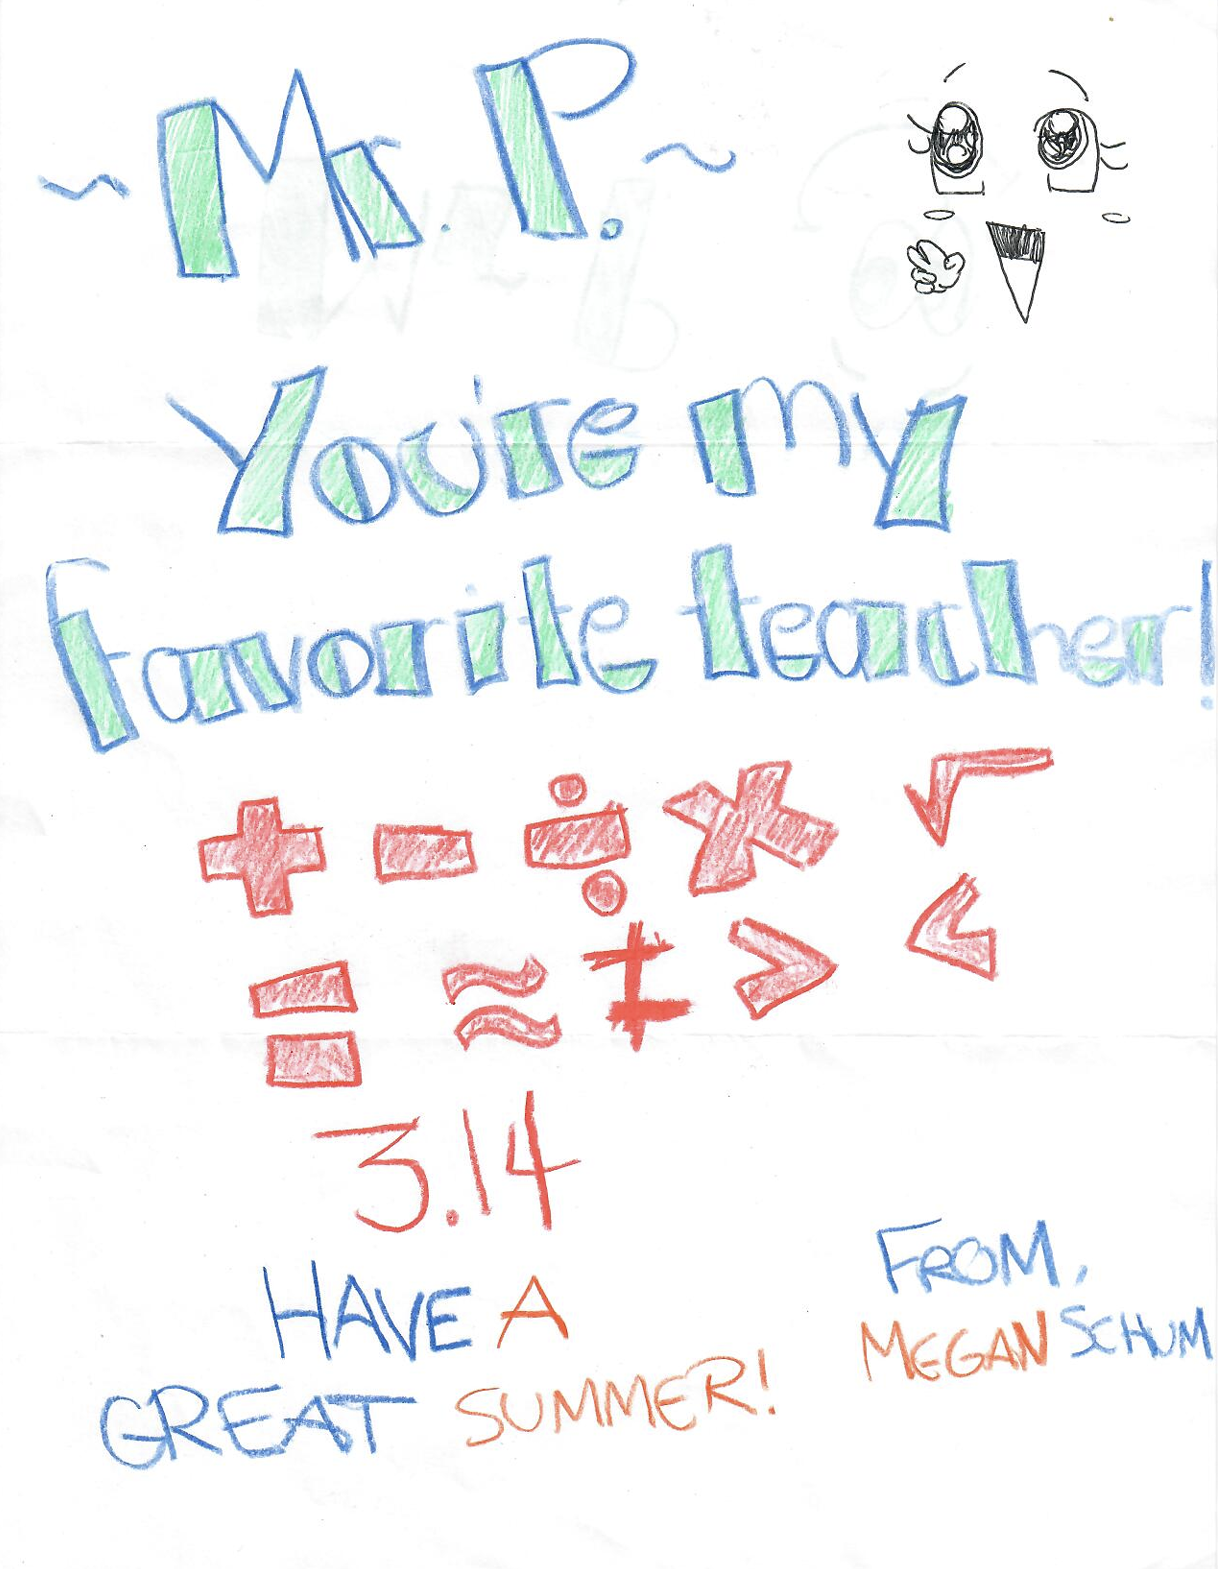 ~ Mr. P. ~
You're my
favorite teacher!
+ - ÷ × √
= ≈ ‡ > <
3.14
HAVE A
GREAT SUMMER!
FROM,
MEGAN SCHUM